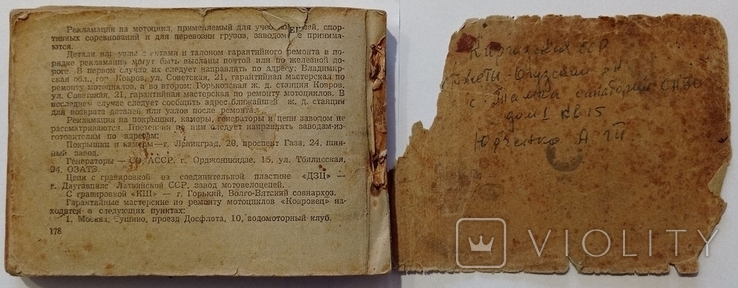 Рекламации на мотоцикл, применяемый для учебных целей, спор-
тивных соревнований и для перевозки грузов, заводом не принима-
ются.
Детали или узлы с актами и талоном гарантийного ремонта в по-
рядке рекламации могут быть высланы почтой или по железной до-
роге. В первом случае их следует направлять по адресу: Владимир-
ская обл., гор. Ковров, ул. Советская, 21, гарантийная мастерская по
ремонту мотоциклов, а во втором: Горьковская ж. д. станция Ковров,
ул. Советская, 21, гарантийная мастерская по ремонту мотоциклов. В
последнем случае следует сообщить адрес ближайшей ж. д. станции
для возврата деталей или узлов после ремонта.
Рекламации на покрышки, камеры, генераторы и цепи заводом не
рассматриваются. Претензии по ним следует направлять заводам-из-
готовителям по адресам:
Покрышки и камеры — г. Ленинград, 20, проспект Газа, 24, шин-
ный завод.
Генераторы — СО АССР, г. Орджоникидзе, 15, ул. Тбилисская,
24, ОЗАТЭ.
Цепи с гравировкой на соединительной пластине «ДЗЦ» —
г. Даугавпилс Латвийской ССР, завод мотовелоцепей.
С гравировкой «КШ» — г. Горький, Волго-Вятский совнархоз.
Гарантийные мастерские по ремонту мотоциклов «Ковровец» на-
ходятся в следующих пунктах:
1. Москва, Тушино, проезд Досфлота, 10, водомоторный клуб.
178
Киргизская ССР
Джеты-Огузский р-н
с. Тамга санаторий
дом 1 кв 15
Юрченко А
VIOLITY